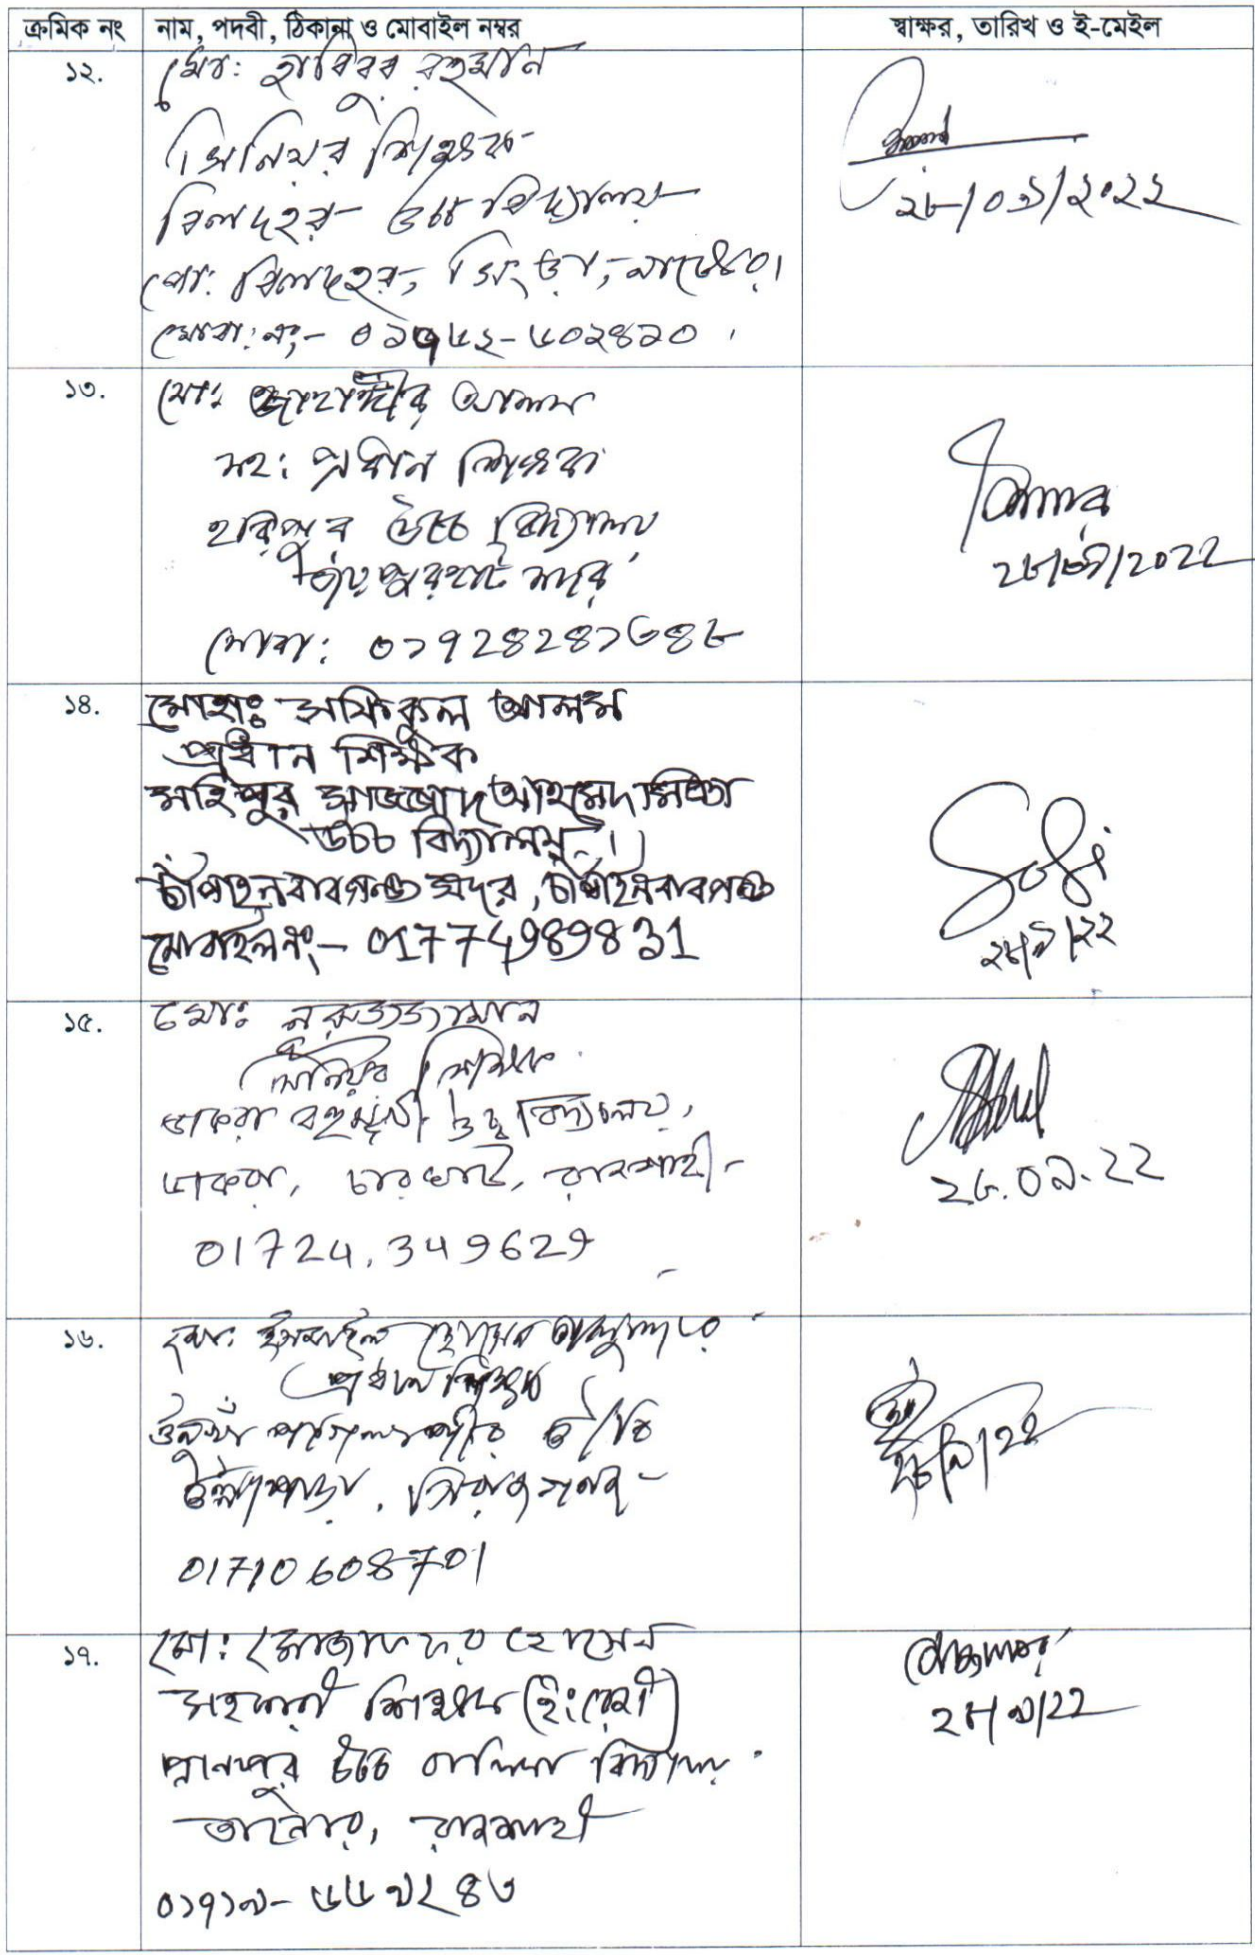 ক্রমিক নং নাম, পদবী, ঠিকানা ও মোবাইল নম্বর স্বাক্ষর, তারিখ ও ই-মেইল
১২. মো: হাবিবুর রহমান
সিনিয়র শিক্ষক
বিলদহর উচ্চ বিদ্যালয়
পো: বিলদহর, সিংড়া, নাটোর।
মোবা: নং- ০১৭৫২-৬০২৪১০
২৮/০৯/২০২২
১৩. মো: জাহাঙ্গীর আলম
সহ: প্রধান শিক্ষক
হরিপুর উচ্চ বিদ্যালয়
জয়পুরহাট সদর
মোবা: ০১৭২৪২৪১৬৪৮
২৮/০৯/2022
১৪. মোহাঃ সফিকুল আলম
প্রধান শিক্ষক
মহিপুর আহমেদ মিঞা
উচ্চ বিদ্যালয়।
চাঁপাইনবাবগঞ্জ সদর, চাঁপাইনবাবগঞ্জ
মোবাইল নং- 01774989831
Sofi
২৮/৯/২২
১৫. মোঃ নুরুজ্জামান
সিনিয়র শিক্ষক
ডাকরা বহুমুখী উচ্চ বিদ্যালয়,
ডাকরা, চারঘাট, রাজশাহী-
01724.349629
২৮.০৯.২২
১৬. মো: ইসমাইল হোসেন
প্রধান শিক্ষক
উল্লাপাড়া, সিরাজগঞ্জ-
01710608701
২৮/৯/২২
১৭. মো: মোজাফফর হোসেন
সহকারী শিক্ষক (ইংরেজী)
উচ্চ বালিকা বিদ্যালয়
তানোর, রাজশাহী
০১৭১৯-৬৬৯২৪৩
২৮/৯/22